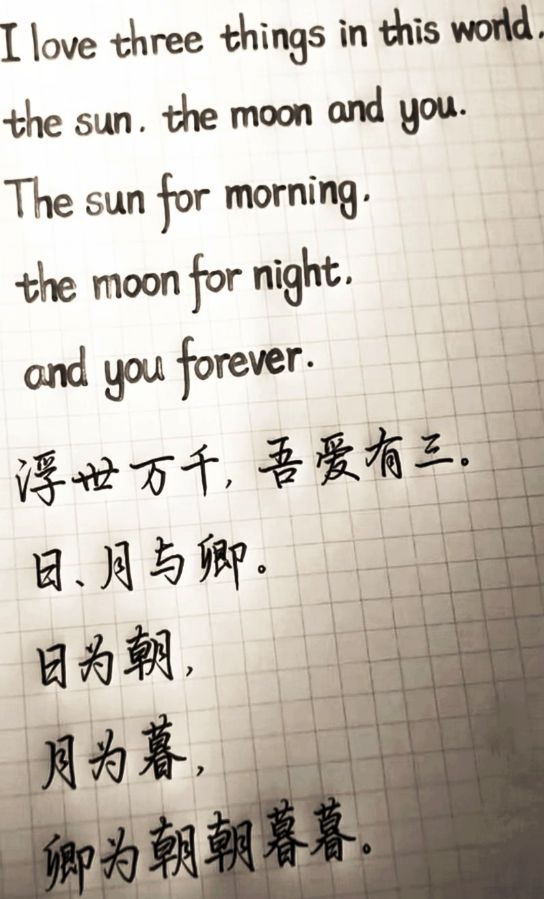 I love three things in this world.
the sun. the moon and you.
The sun for morning.
the moon for night.
and you forever.
浮世万千, 吾爱有三。
日、月与卿。
日为朝,
月为暮,
卿为朝朝暮暮。